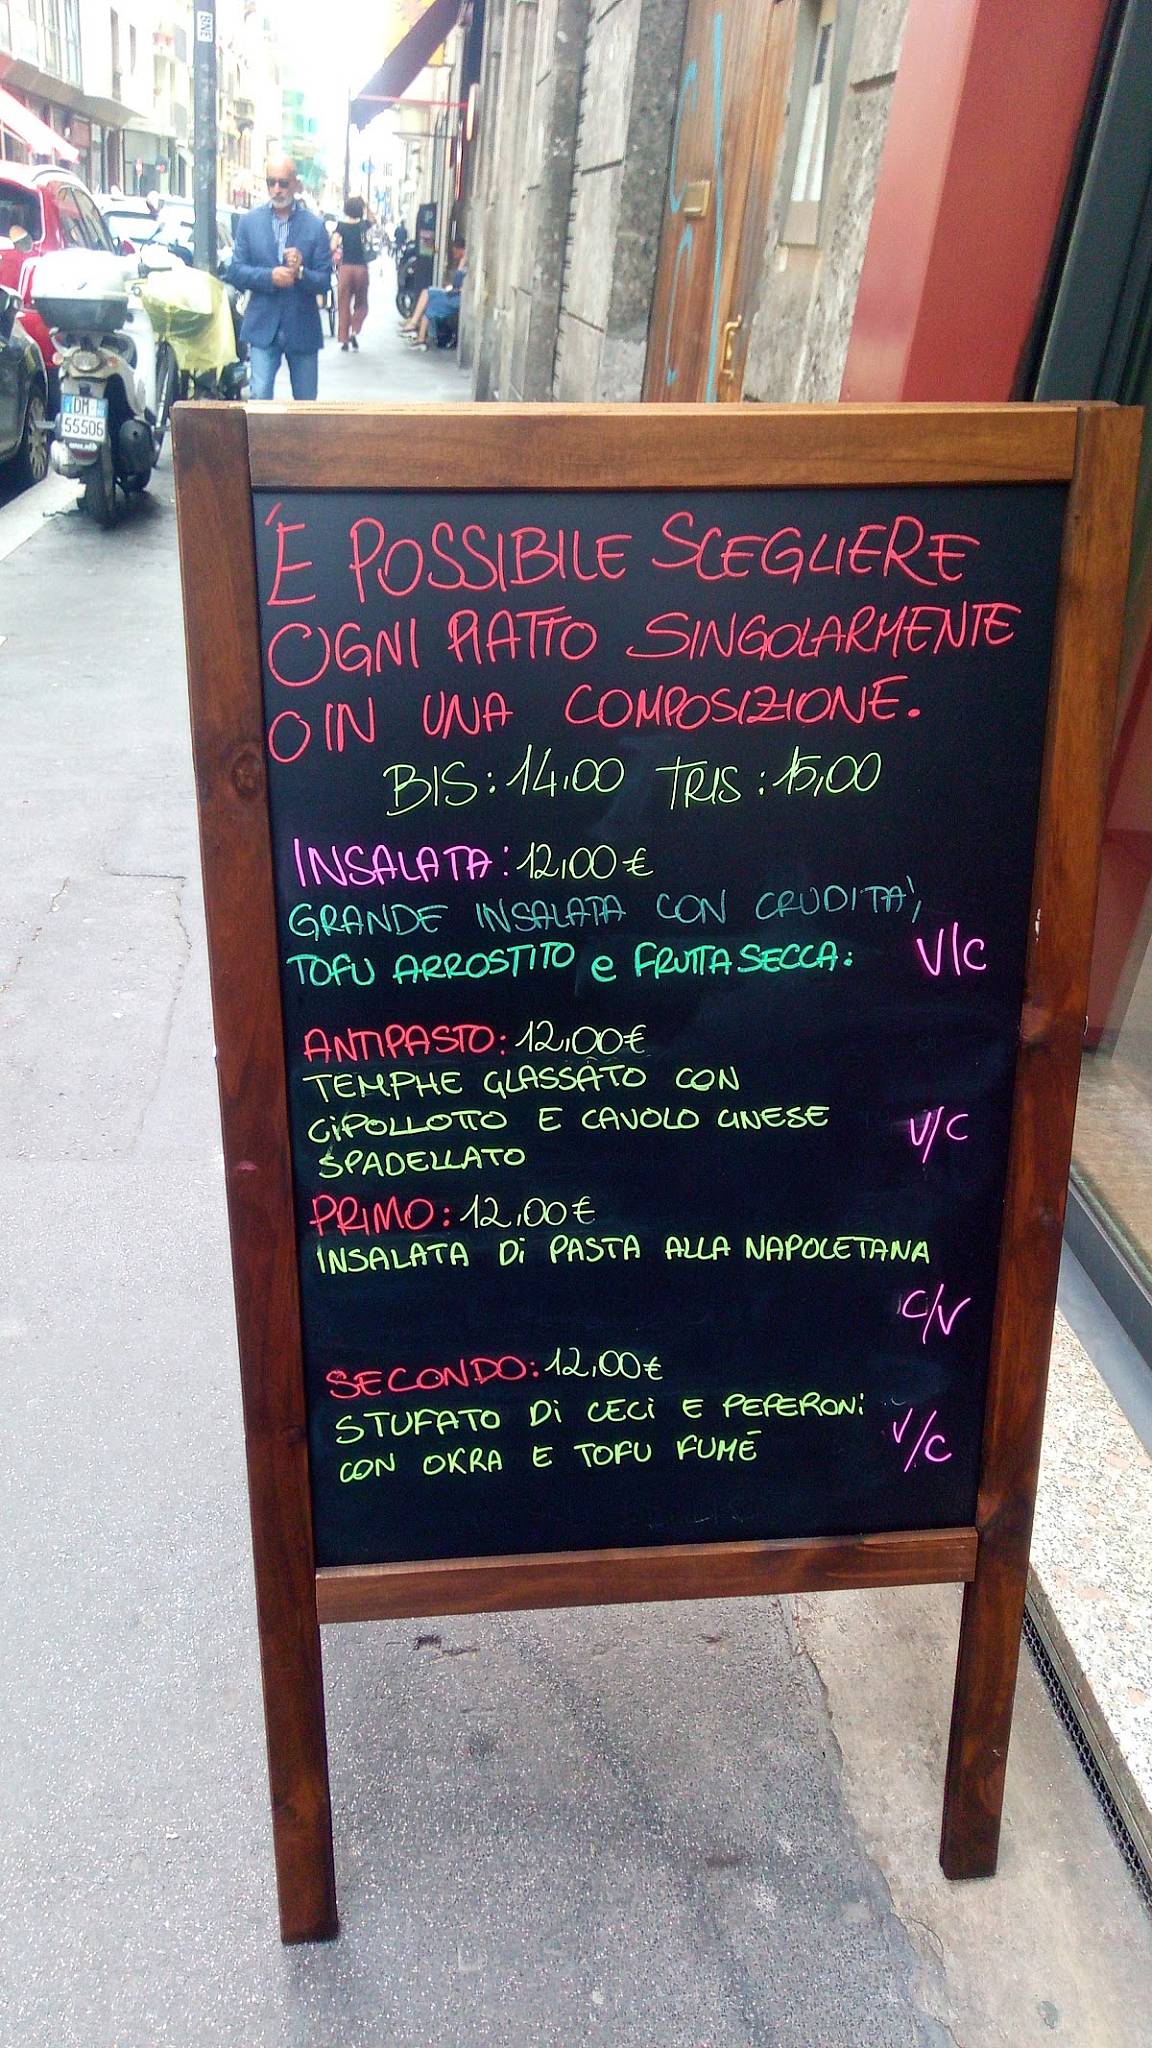 BNE
DM
55506
É POSSIBILE SCEGLIERE
OGNI PIATTO SINGOLARMENTE
O IN UNA COMPOSIZIONE.
BIS: 14,00 TRIS: 15,00
INSALATA: 12,00 €
GRANDE INSALATA CON CRUDITA',
TOFU ARROSTITO e FRUTTA SECCA: V/C
ANTIPASTO: 12,00 €
TEMPHE GLASSATO CON
CIPOLLOTTO E CAVOLO CINESE V/C
SPADELLATO
PRIMO: 12,00 €
INSALATA Di PASTA ALLA NAPOLETANA
C/V
SECONDO: 12,00 €
STUFATO Di CECi E PEPERONi
CON OKRA E TOFU FUMÉ V/C